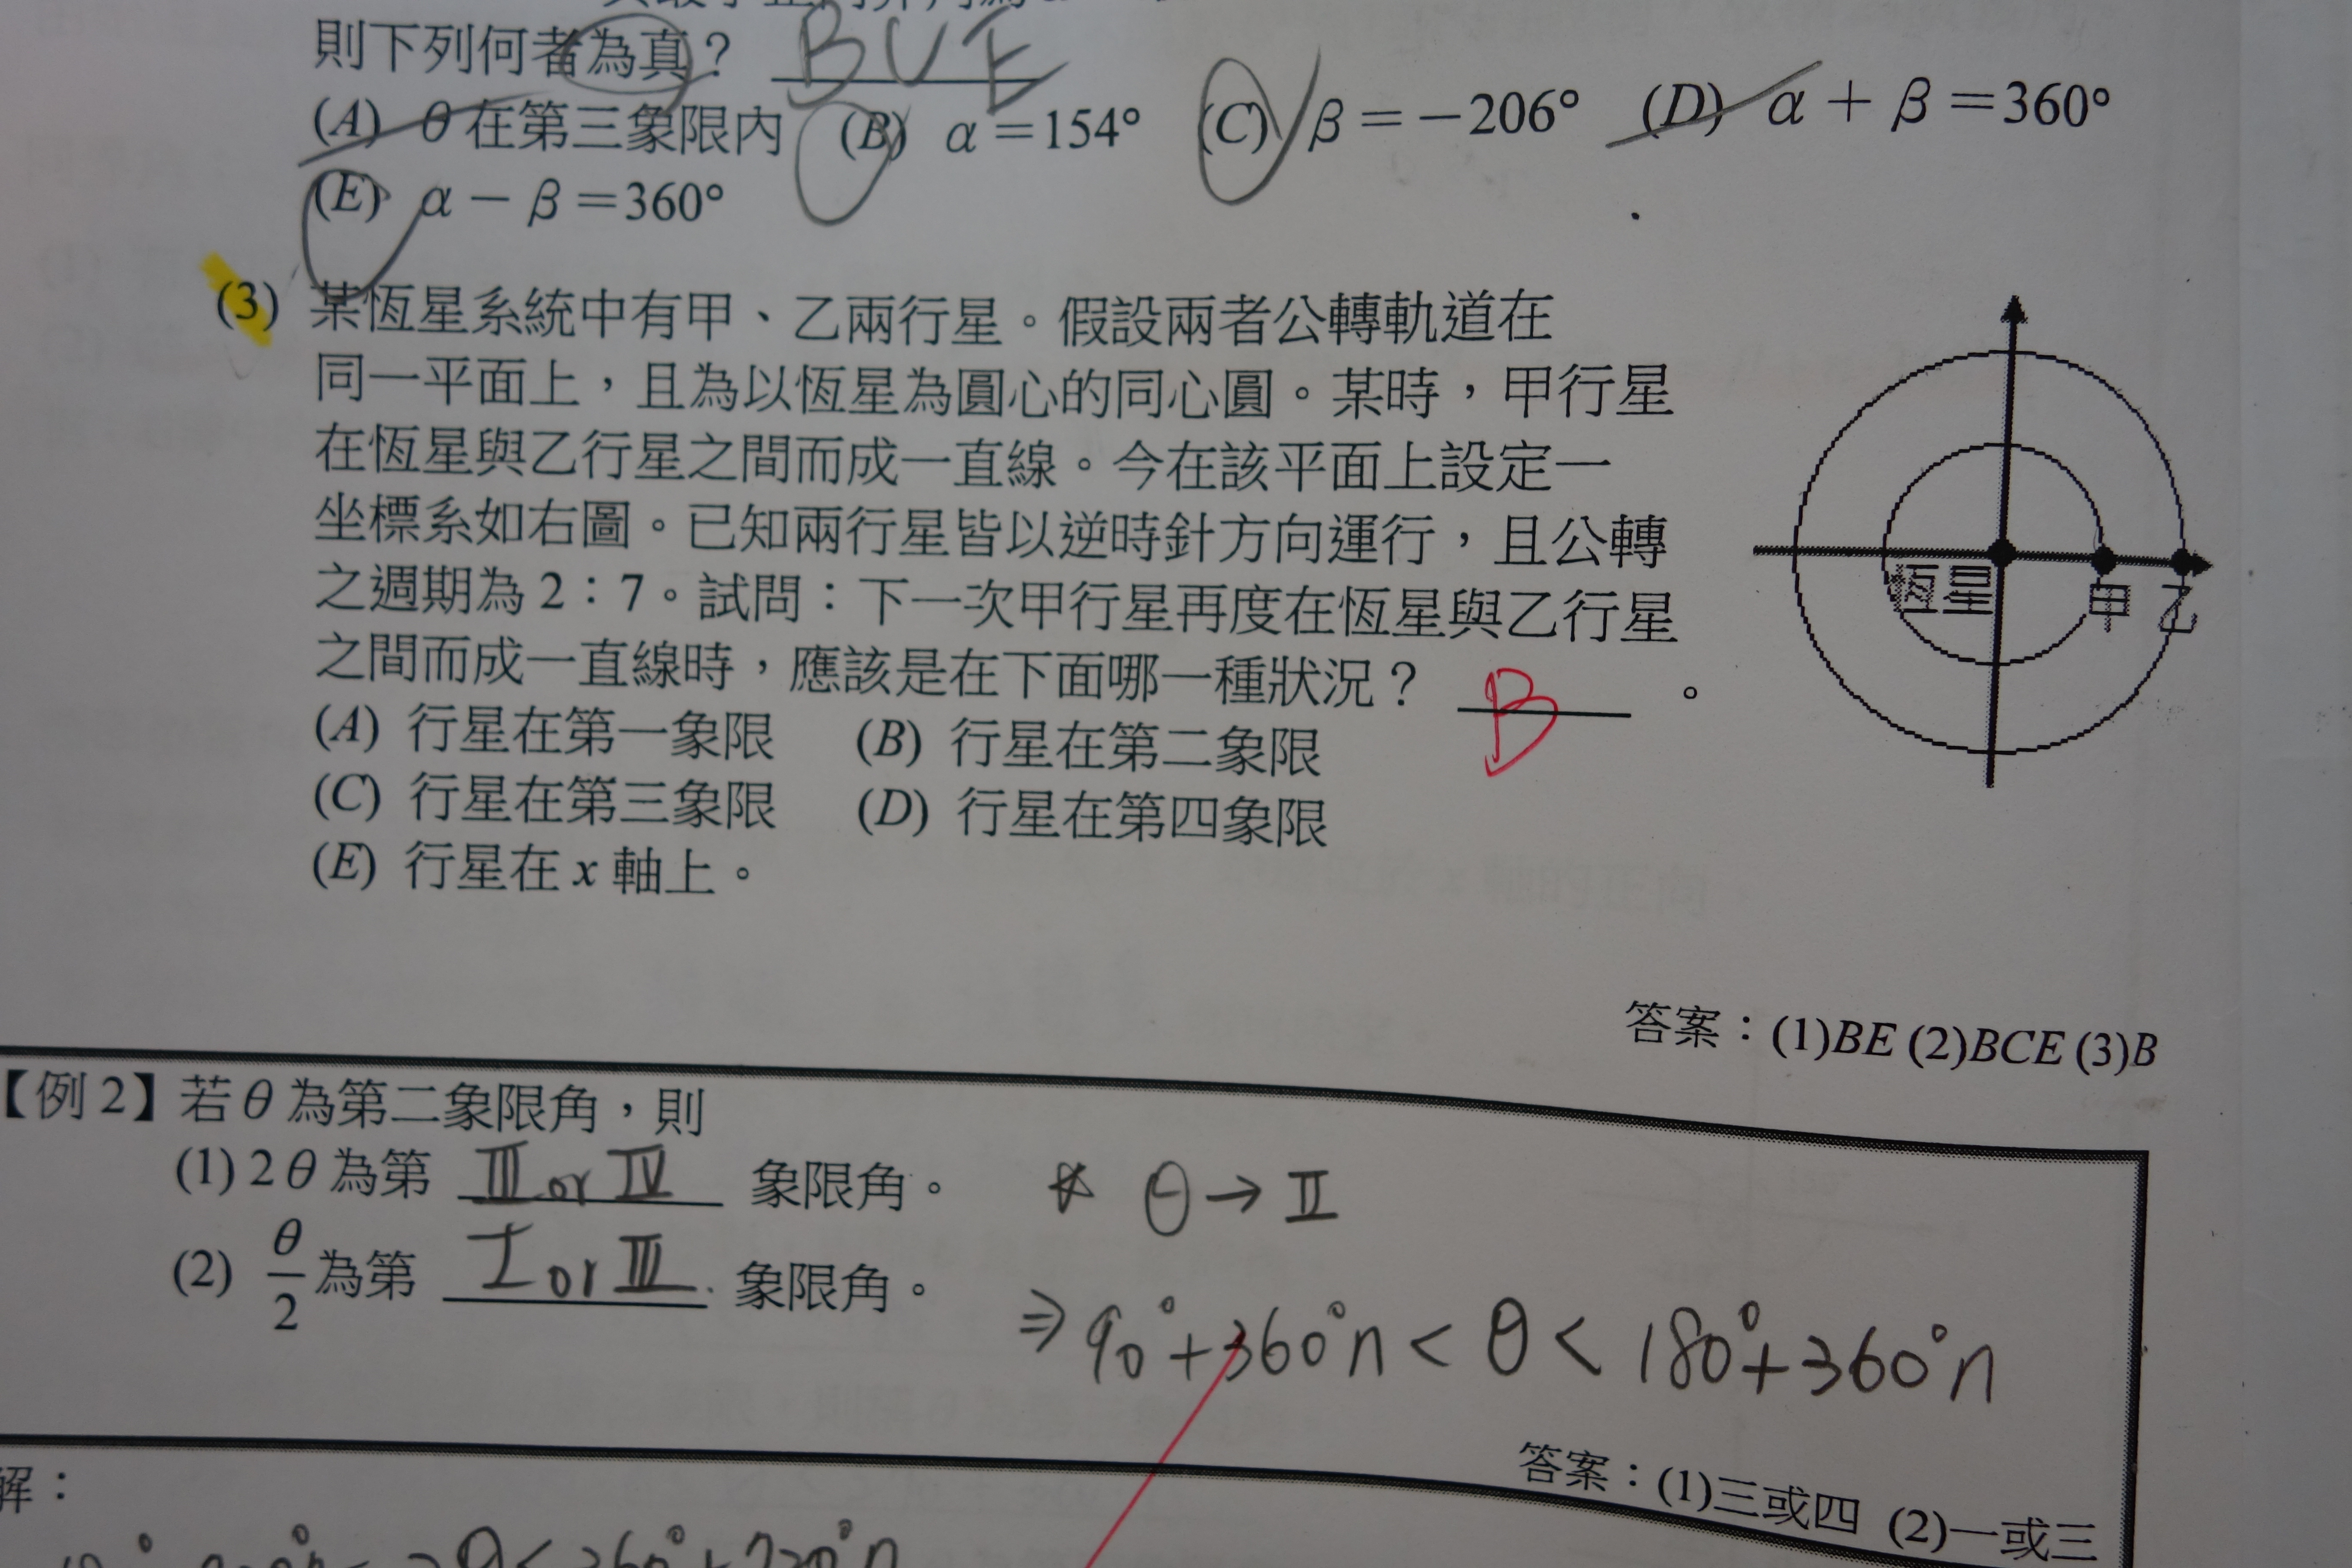 則下列何者為真？ BCE
(A) θ 在第三象限內 (B) α＝154° (C) β＝－206° (D) α＋β＝360°
(E) α－β＝360°
(3) 某恆星系統中有甲、乙兩行星。假設兩者公轉軌道在
同一平面上，且為以恆星為圓心的同心圓。某時，甲行星
在恆星與乙行星之間而成一直線。今在該平面上設定一
坐標系如右圖。已知兩行星皆以逆時針方向運行，且公轉
之週期為 2：7。試問：下一次甲行星再度在恆星與乙行星
之間而成一直線時，應該是在下面哪一種狀況？ B 。
(A) 行星在第一象限 (B) 行星在第二象限
(C) 行星在第三象限 (D) 行星在第四象限
(E) 行星在 x 軸上。
恆星 甲 乙
答案：(1)BE (2)BCE (3)B
【例 2】若 θ 為第二象限角，則
(1) 2θ 為第 III or IV 象限角。
(2) θ/2 為第 I or III 象限角。
* θ → II
⇒ 90°+360°n < θ < 180°+360°n
答案：(1)三或四 (2)一或三
解：